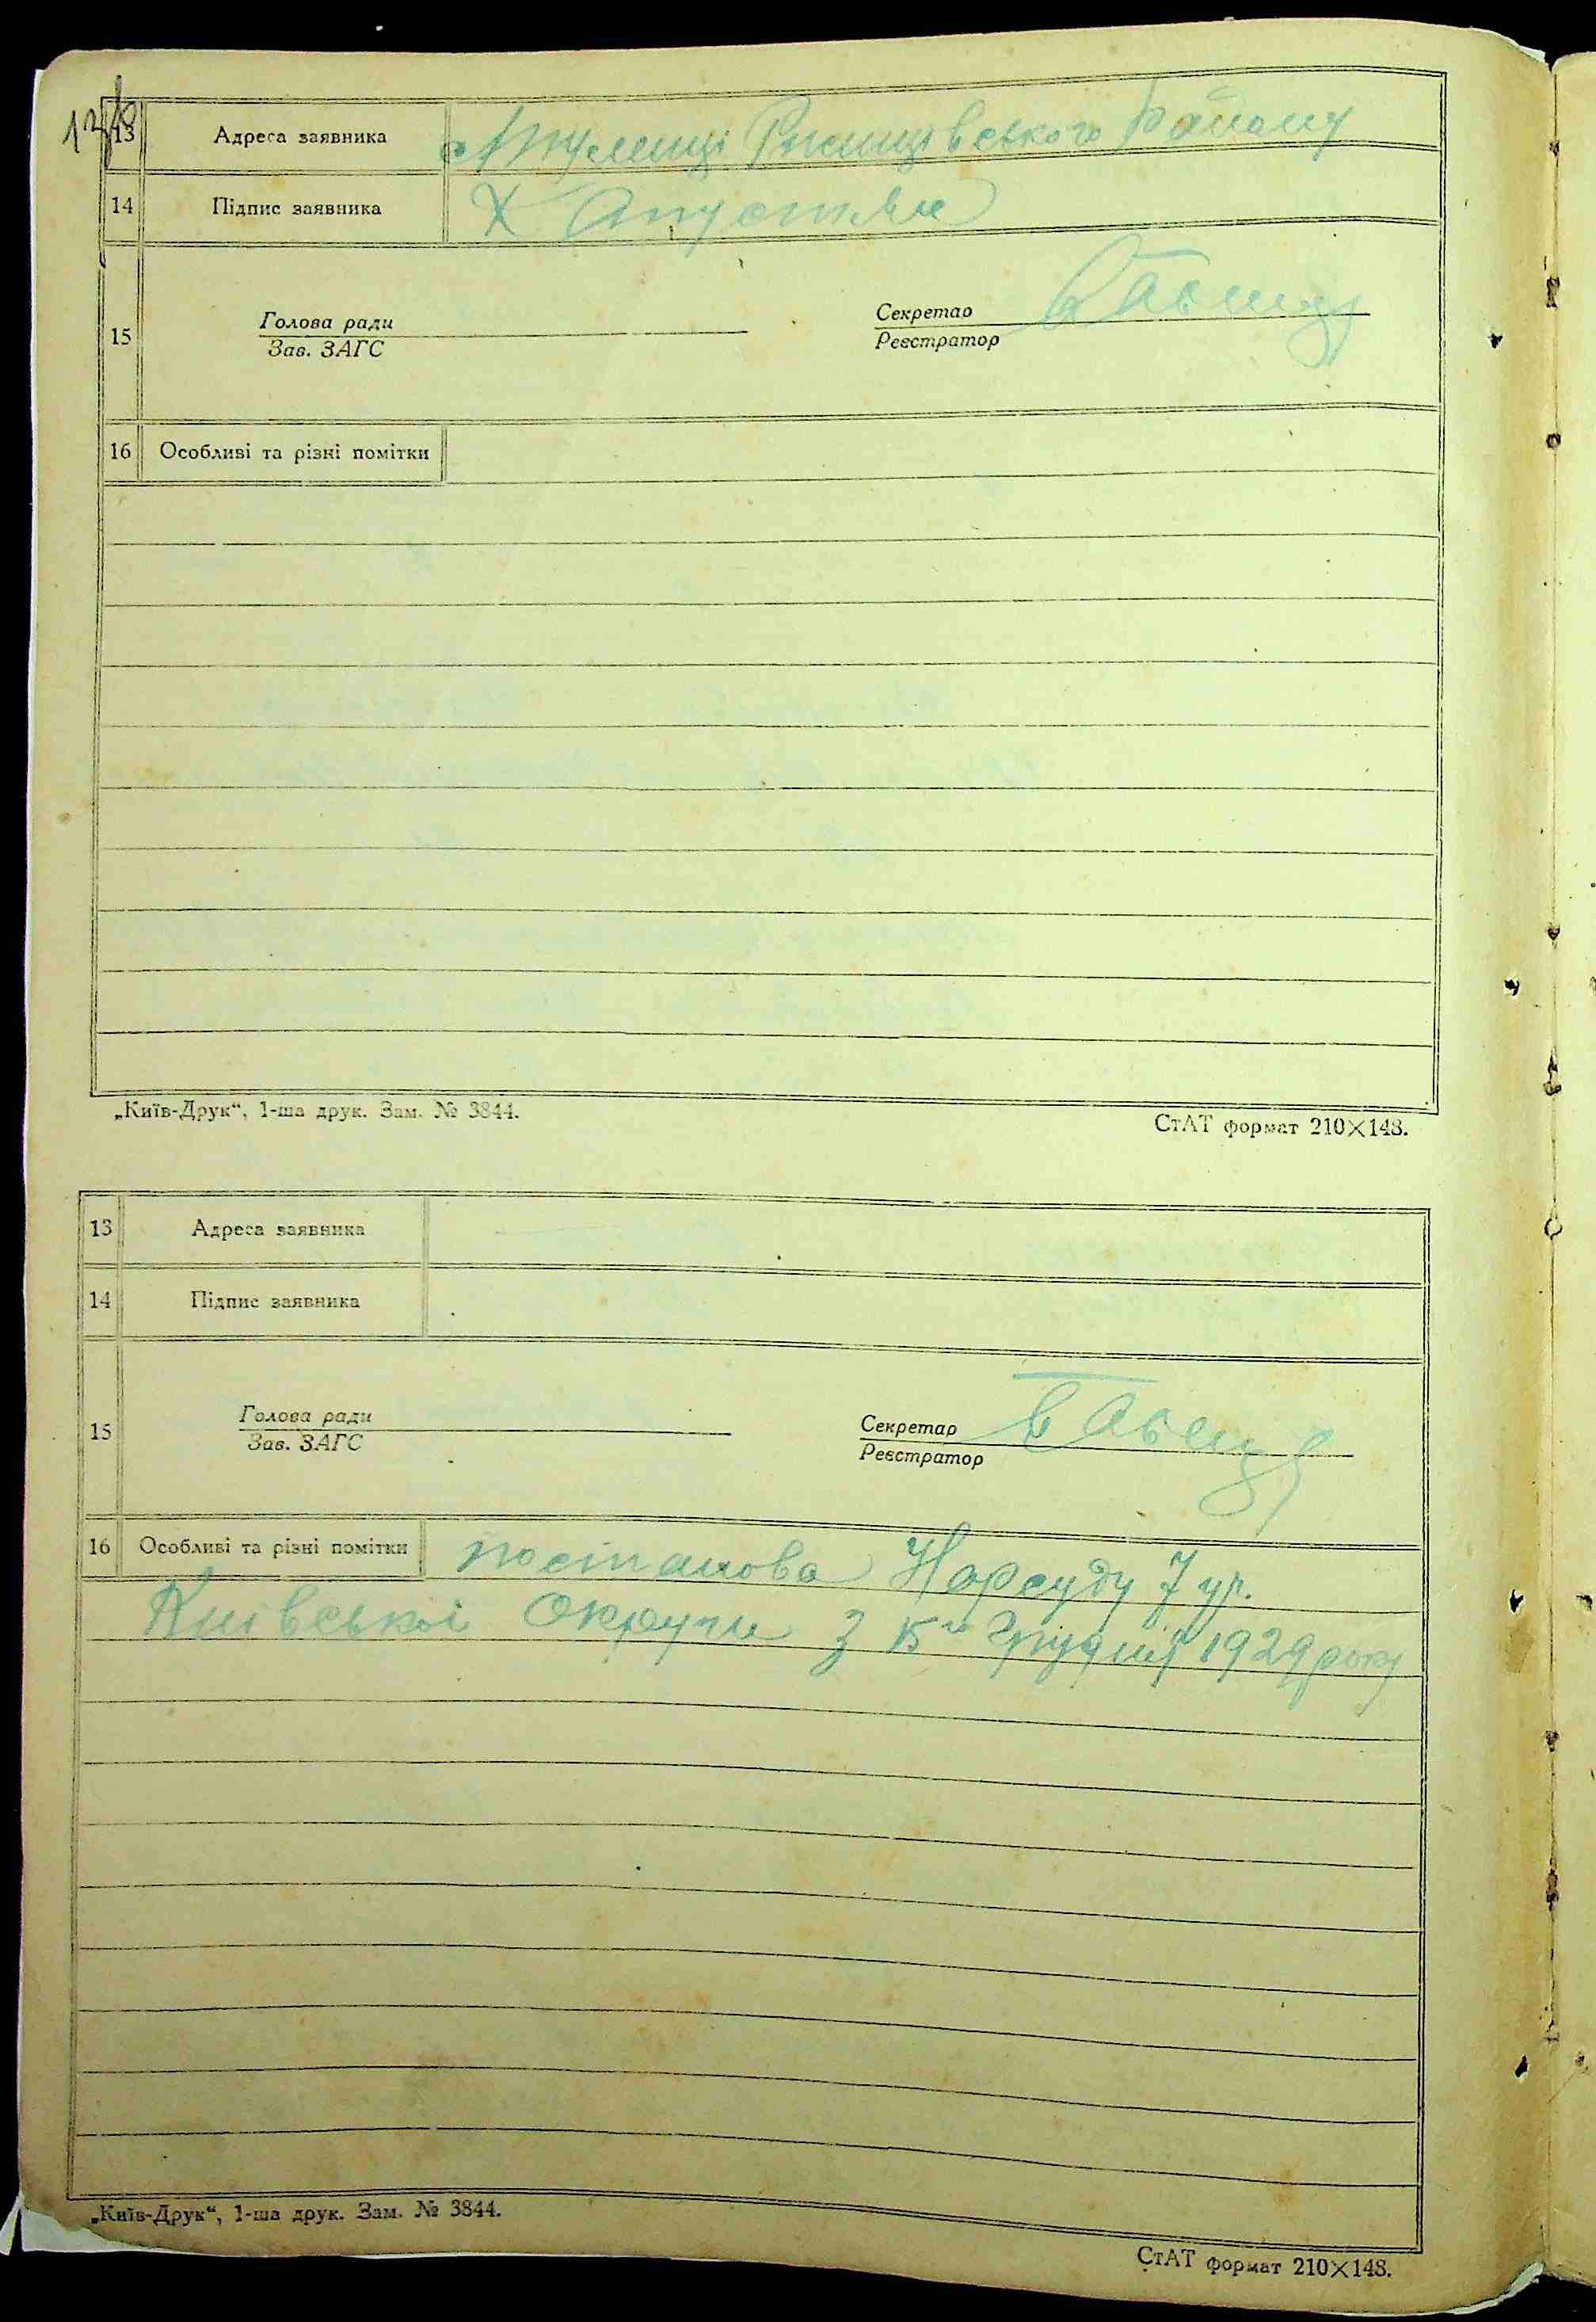 13 Адреса заявника Ржищівського Району
14 Підпис заявника Х
15 Голова ради Секретар
Зав. ЗАГС Реєстратор
16 Особливі та різні помітки
„Київ-Друк“, 1-ша друк. Зам. № 3844.
СтАТ формат 210×148.
13 Адреса заявника
14 Підпис заявника
15 Голова ради Секретар
Зав. ЗАГС Реєстратор
16 Особливі та різні помітки постанова Нарсуду 7 уч.
Київської Округи з 15го грудня 1929 року
„Київ-Друк“, 1-ша друк. Зам. № 3844.
СтАТ формат 210×148.